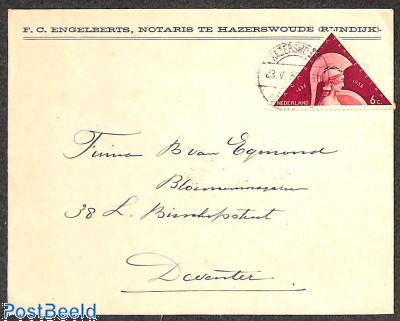 F. C. ENGELBERTS, NOTARIS TE HAZERSWOUDE (RIJNDIJK).
HAZERSWOUDE
23.V
1636 1936
NEDERLAND 6 c.
Firma B van Egmond
Bloemenmagazijn
38 L. Bisschopstraat
Deventer.
PostBeeld